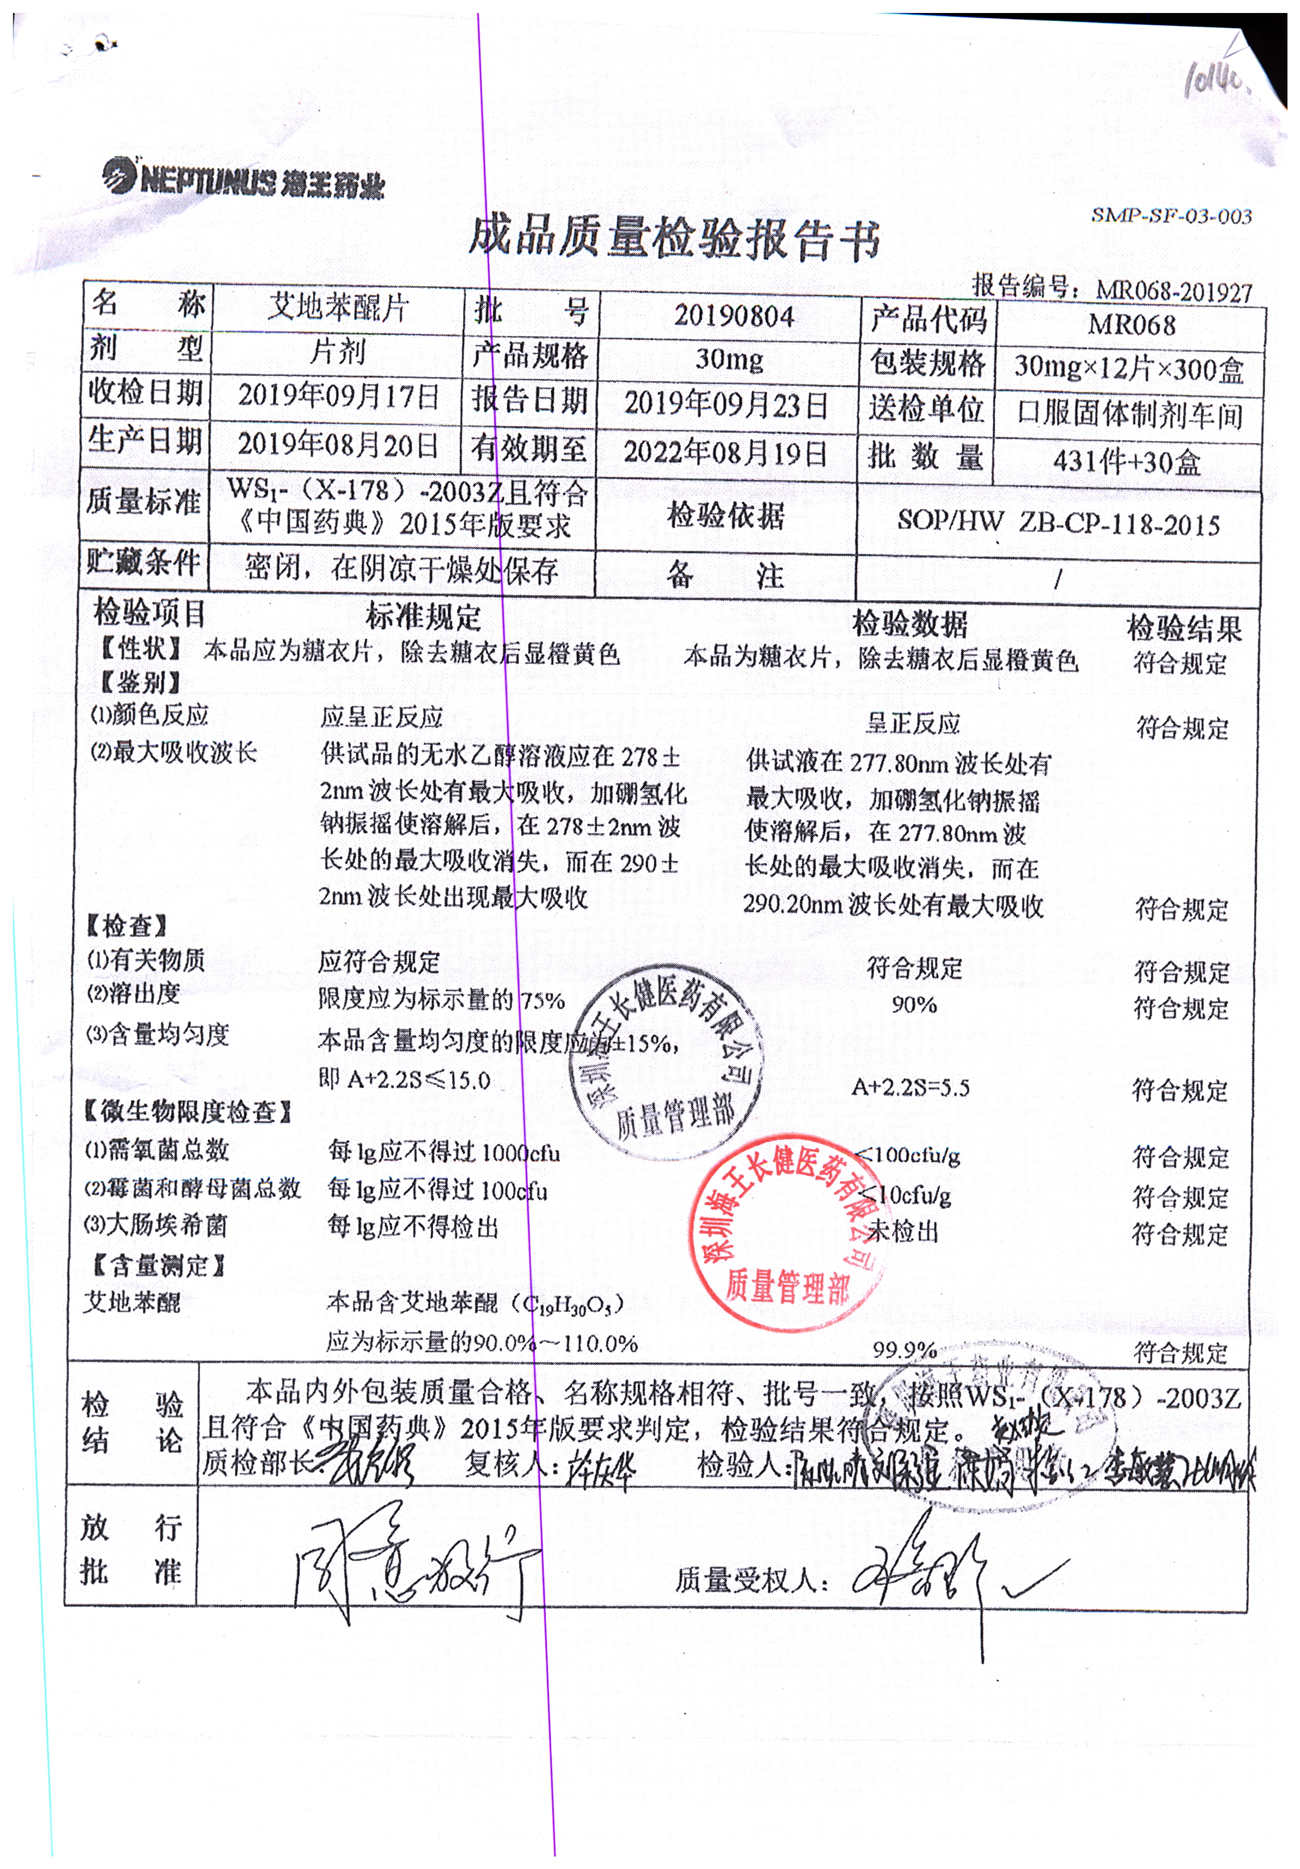 10140.
NEPTUNUS 海王药业
SMP-SF-03-003
成品质量检验报告书
报告编号：MR068-201927
名 称 艾地苯醌片 批 号 20190804 产品代码 MR068
剂 型 片剂 产品规格 30mg 包装规格 30mg×12片×300盒
收检日期 2019年09月17日 报告日期 2019年09月23日 送检单位 口服固体制剂车间
生产日期 2019年08月20日 有效期至 2022年08月19日 批 数 量 431件+30盒
质量标准 WS₁-（X-178）-2003Z且符合《中国药典》2015年版要求 检验依据 SOP/HW ZB-CP-118-2015
贮藏条件 密闭，在阴凉干燥处保存 备 注 /
检验项目 标准规定 检验数据 检验结果
【性状】 本品应为糖衣片，除去糖衣后显橙黄色 本品为糖衣片，除去糖衣后显橙黄色 符合规定
【鉴别】
⑴颜色反应 应呈正反应 呈正反应 符合规定
⑵最大吸收波长 供试品的无水乙醇溶液应在 278± 供试液在 277.80nm 波长处有
2nm 波长处有最大吸收，加硼氢化 最大吸收，加硼氢化钠振摇
钠振摇使溶解后，在 278±2nm 波 使溶解后，在 277.80nm 波
长处的最大吸收消失，而在 290± 长处的最大吸收消失，而在
2nm 波长处出现最大吸收 290.20nm 波长处有最大吸收 符合规定
【检查】
⑴有关物质 应符合规定 符合规定 符合规定
⑵溶出度 限度应为标示量的 75% 90% 符合规定
⑶含量均匀度 本品含量均匀度的限度应为±15%，
即 A+2.2S≤15.0 A+2.2S=5.5 符合规定
【微生物限度检查】
⑴需氧菌总数 每 1g应不得过 1000cfu <100cfu/g 符合规定
⑵霉菌和酵母菌总数 每 1g应不得过 100cfu <10cfu/g 符合规定
⑶大肠埃希菌 每 1g应不得检出 未检出 符合规定
【含量测定】
艾地苯醌 本品含艾地苯醌（C₁₉H₃₀O₅）
应为标示量的90.0%～110.0% 99.9% 符合规定
深圳海王长健医药有限公司
质量管理部
深圳海王长健医药有限公司
质量管理部
检 验 结 论
本品内外包装质量合格、名称规格相符、批号一致，按照WS₁-（X-178）-2003Z
且符合《中国药典》2015年版要求判定，检验结果符合规定。
质检部长: 复核人: 检验人:
放 行 批 准
同意放行 质量受权人: